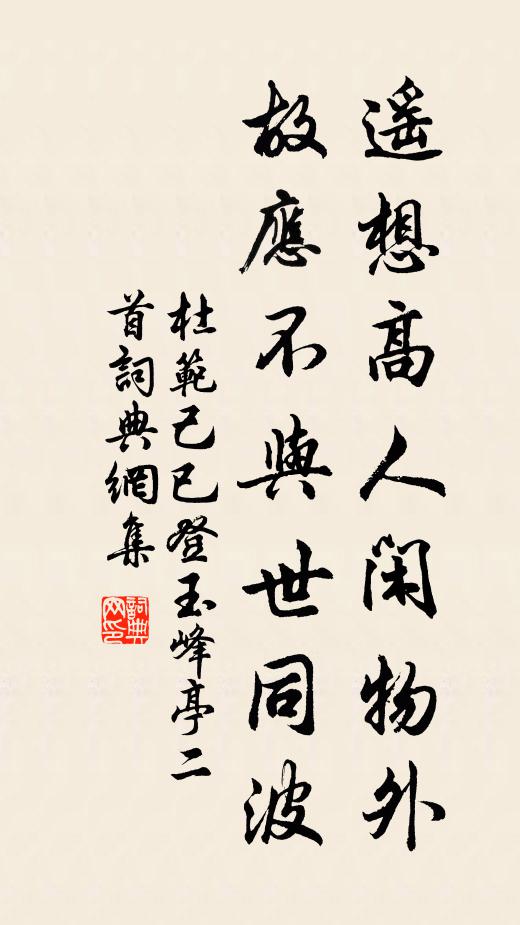 遥想高人闲物外
故應不與世同波
杜範己巳登玉峰亭二
首詞典網集
詞典
网印